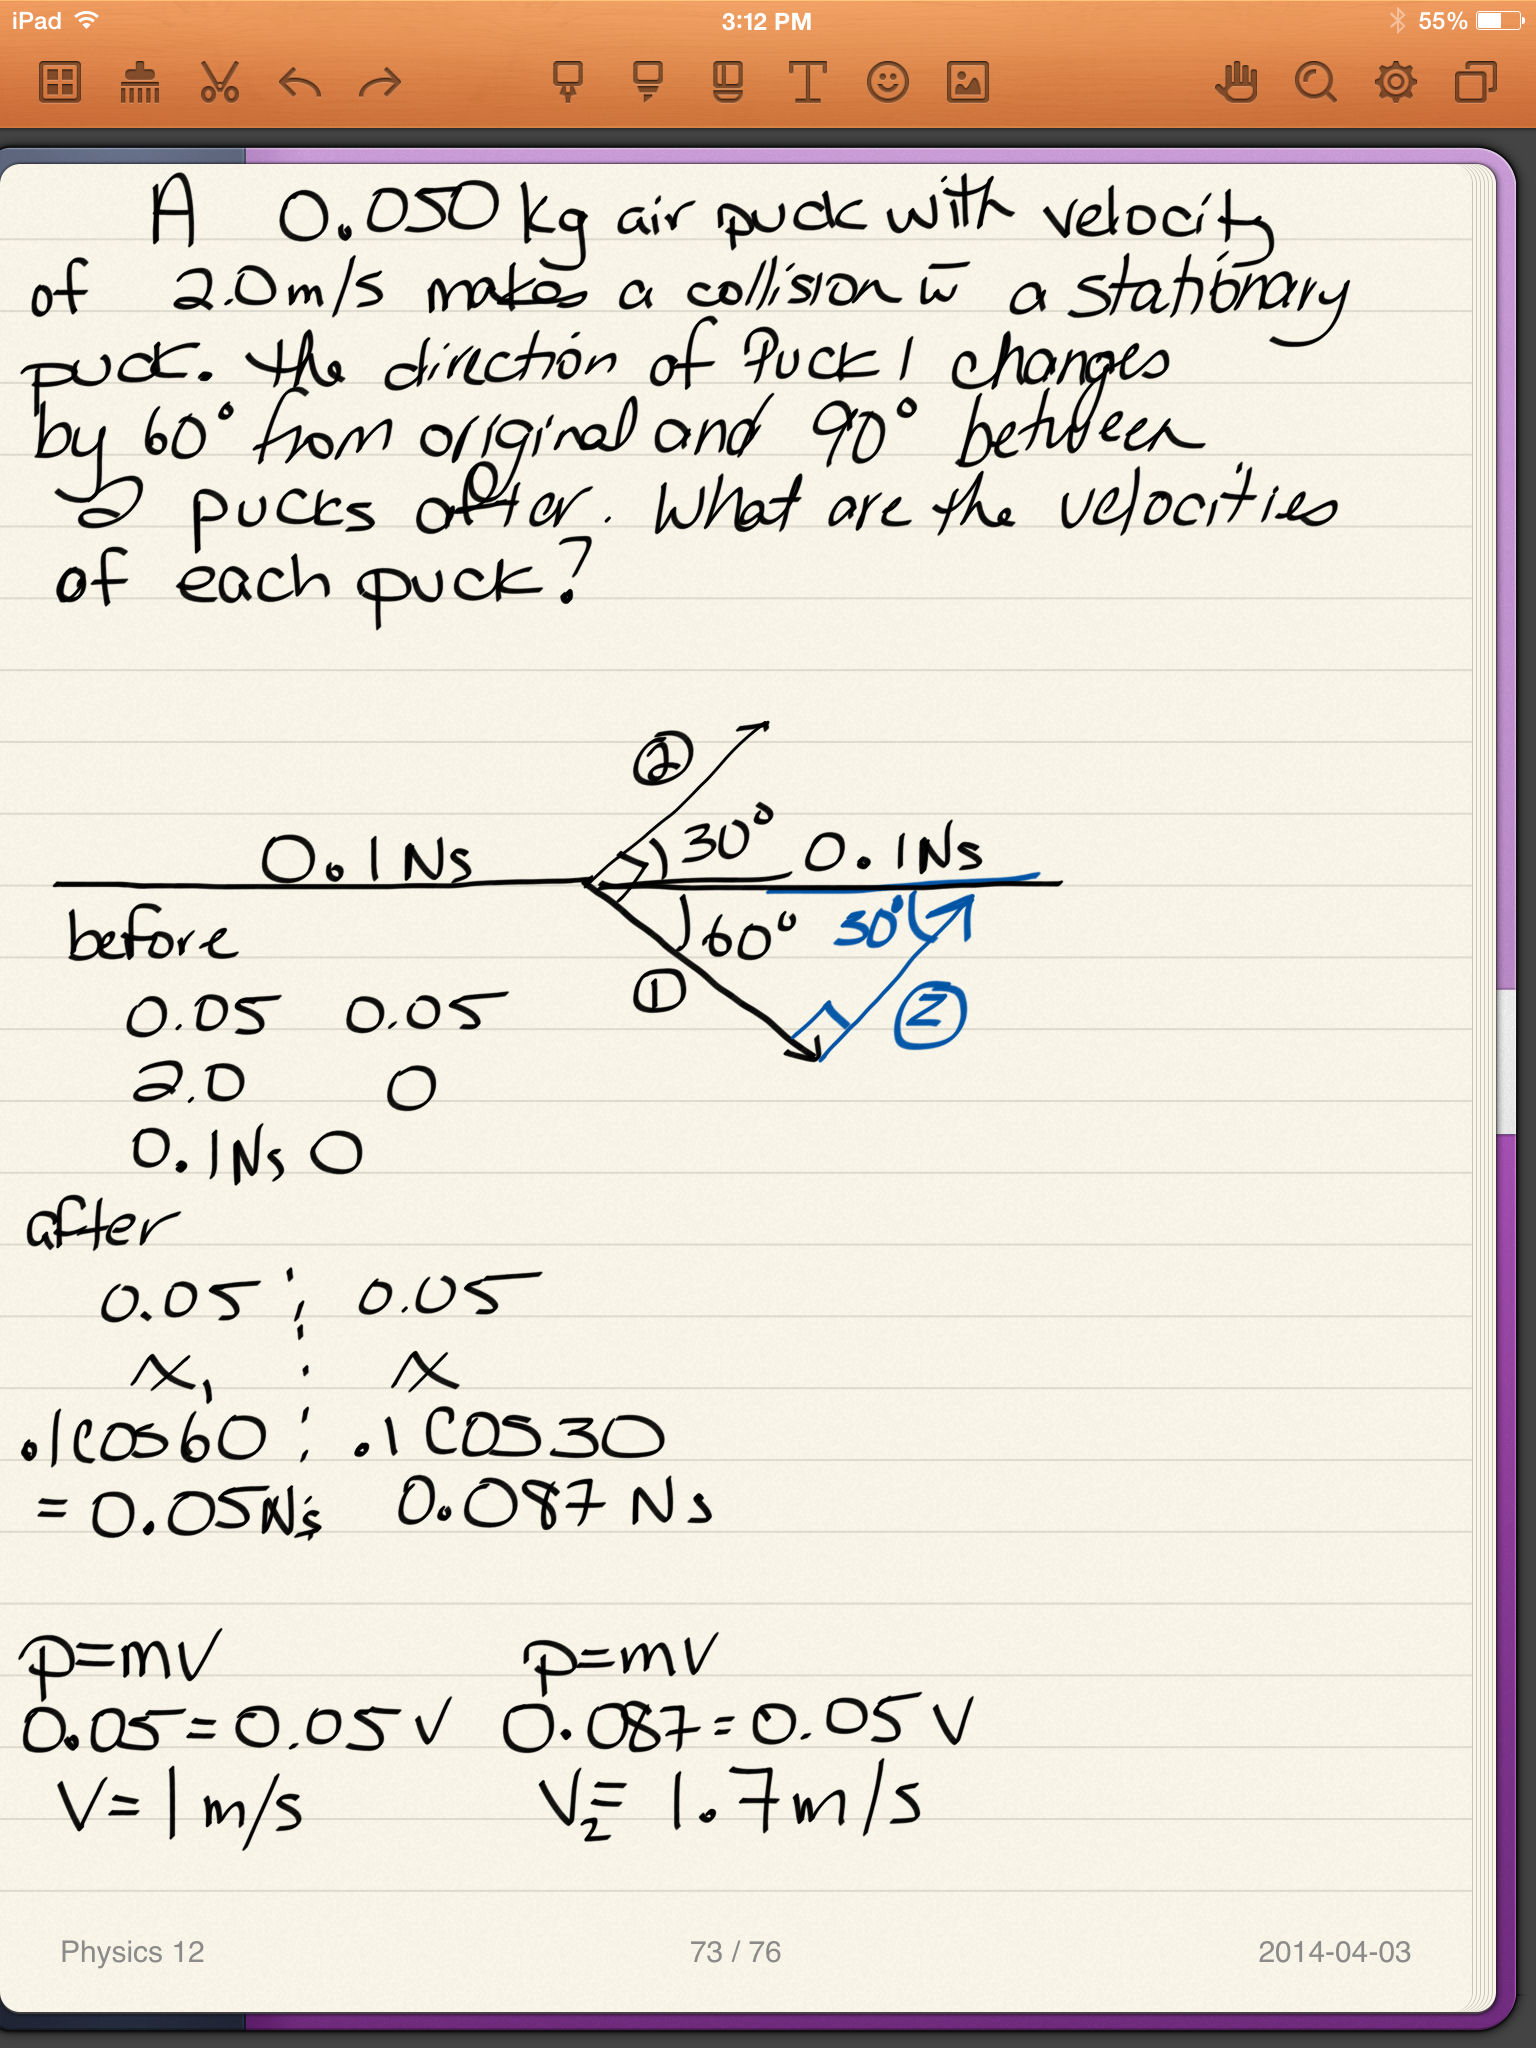 iPad
3:12 PM
55%
A 0.050 kg air puck with velocity
of 2.0 m/s makes a collision w̄ a stationary
puck. the direction of Puck 1 changes
by 60° from original and 90° between
2 pucks after. What are the velocities
of each puck?
②
30°
0.1 Ns
0.1 Ns
before
60°
30°
①
②
0.05 0.05
2.0 0
0.1 Ns 0
after
0.05 0.05
x₁ x
.1 cos 60 .1 cos 30
= 0.05 Ns 0.087 Ns
p=mv p=mv
0.05 = 0.05 v 0.087 = 0.05 v
V = 1 m/s V₂ = 1.7 m/s
Physics 12
73 / 76
2014-04-03